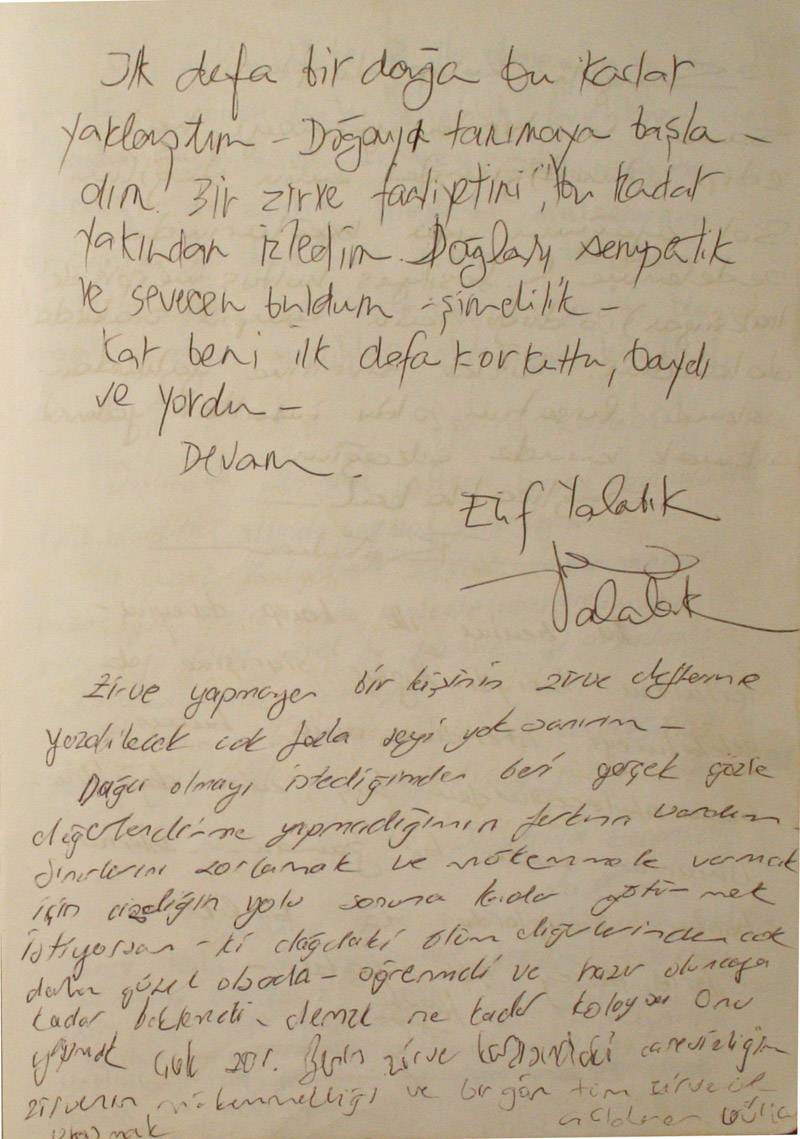 İlk defa bir dağa bu kadar
yaklaştım - Doğayı tanımaya başla -
dım. Bir zirve faaliyetini, bu kadar
yakından izledim. Dağları sempatik
ve sevecen buldum - şimdilik -
Kar beni ilk defa korkuttu, baydı
ve yordu -
Devam.
Elif Yalatık
Zirve yapmayan bir kişinin zirve defterine
yazabilecek çok fazla şeyi yok sanırım -
Dağcı olmayı istediğimden beri gerçek gözle
değerlendirme yapmadığımın farkına vardım.
Sınırlarını zorlamak ve mükemmele varmak
için çizdiğin yolu sonuna kadar götürmek
istiyorsan - ki dağdaki ölüm diğerlerinden çok
daha güzel olsada - öğrenmeli ve hazır oluncaya
kadar beklemeli. demek ne kadar kolaysa onu
yaşamak çok zor. Benim zirve karşısındaki
zirvenin mükemmelliği ve bir gün tüm